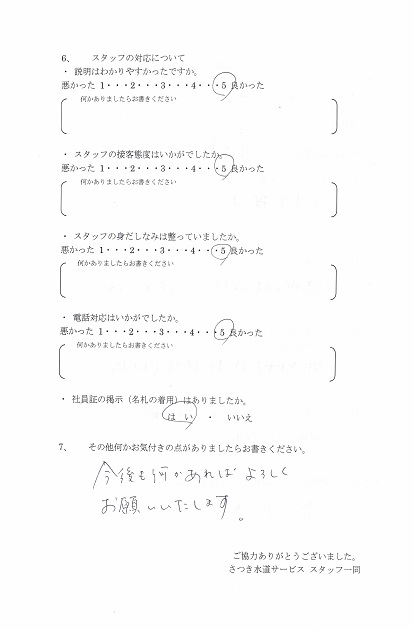 6、 スタッフの対応について
・ 説明はわかりやすかったですか。
悪かった 1・・・2・・・3・・・4・・・5 良かった
何かありましたらお書きください
・ スタッフの接客態度はいかがでしたか。
悪かった 1・・・2・・・3・・・4・・・5 良かった
何かありましたらお書きください
・ スタッフの身だしなみは整っていましたか。
悪かった 1・・・2・・・3・・・4・・・5 良かった
何かありましたらお書きください
・ 電話対応はいかがでしたか。
悪かった 1・・・2・・・3・・・4・・・5 良かった
何かありましたらお書きください
・ 社員証の掲示(名札の着用)はありましたか。
はい ・ いいえ
7、 その他何かお気付きの点がありましたらお書きください。
今後も何かあればよろしく
お願いいたします。
ご協力ありがとうございました。
さつき水道サービス スタッフ一同